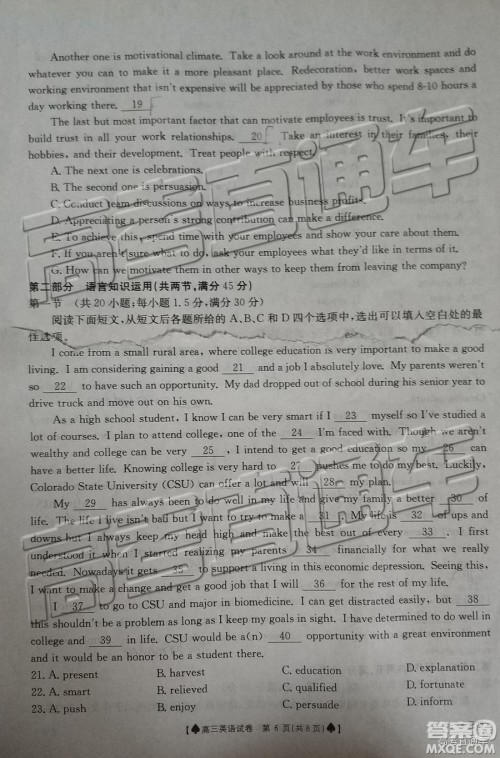 Another one is motivational climate. Take a look around at the work environment and do
whatever you can to make it a more pleasant place. Redecoration, better work spaces and
working environment that isn't expensive will be appreciated by those who spend 8-10 hours a
day working there. 19
The last but most important factor that can motivate employees is trust. It's important to
build trust in all your work relationships. 20 Take an interest in their families, their
hobbies, and their development. Treat people with respect.
A. The next one is celebrations.
B. The second one is persuasion.
C. Conduct team discussions on ways to increase business profits.
D. Appreciating a person's strong contribution can make a difference.
E. To achieve this, spend time with your employees and show your care about them.
F. If you aren't sure what to do, ask employees what they'd like in terms of it.
G. How can we motivate them in other ways to keep them from leaving the company?
第二部分 语言知识运用(共两节,满分 45 分)
第一节 (共 20 小题;每小题 1.5 分,满分 30 分)
阅读下面短文,从短文后各题所给的 A、B、C 和 D 四个选项中,选出可以填入空白处的最
佳选项。
I come from a small rural area, where college education is very important to make a good
living. I am considering gaining a good 21 and a job I absolutely love. My parents weren't
so 22 to have such an opportunity. My dad dropped out of school during his senior year to
drive truck and move out on his own.
As a high school student, I know I can be very smart if I 23 myself so I've studied a
lot of courses. I plan to attend college, one of the 24 I'm faced with. Though we aren't
wealthy and college can be very 25 , I intend to get a good education so my 26 can
have a better life. Knowing college is very hard to 27 pushes me to do my best. Luckily,
Colorado State University (CSU) can offer a lot and will 28 my plan.
My 29 has always been to do well in my life and give my family a better 30 of
life. The life I live isn't bad but I want to try to make a 31 . My life is 32 of ups and
downs but I always keep my head high and make the best out of every 33 . I first
understood it when I started realizing my parents 34 financially for what we really
needed. Nowadays it gets 35 to support a living in this economic depression. Seeing this,
I want to make a change and get a good job that I will 36 for the rest of my life.
I 37 to go to CSU and major in biomedicine. I can get distracted easily, but 38
this shouldn't be a problem as long as I keep my goals in sight. I have determined to do well in
college and 39 in life. CSU would be a(n) 40 opportunity with a great environment
and it would be an honor to be a student there.
21. A. present B. harvest C. education D. explanation
22. A. smart B. relieved C. qualified D. fortunate
23. A. push B. enjoy C. persuade D. inform
【♠高三英语试卷 第 6 页(共 8 页)♠】
高考直通车
高考直通车
答案圈
MXQE.COM